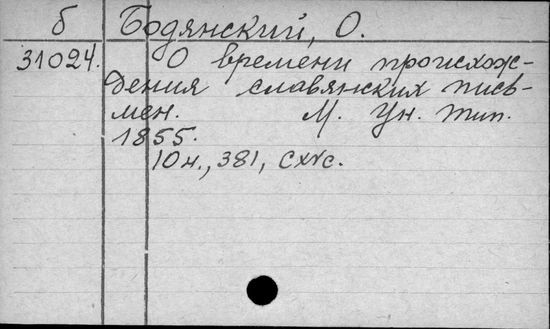 б Бодянский, О.
31024. О времени происхож-
дения славянских пись-
мен. М. Ун. тип.
1855.
10н., 381, CXVс.